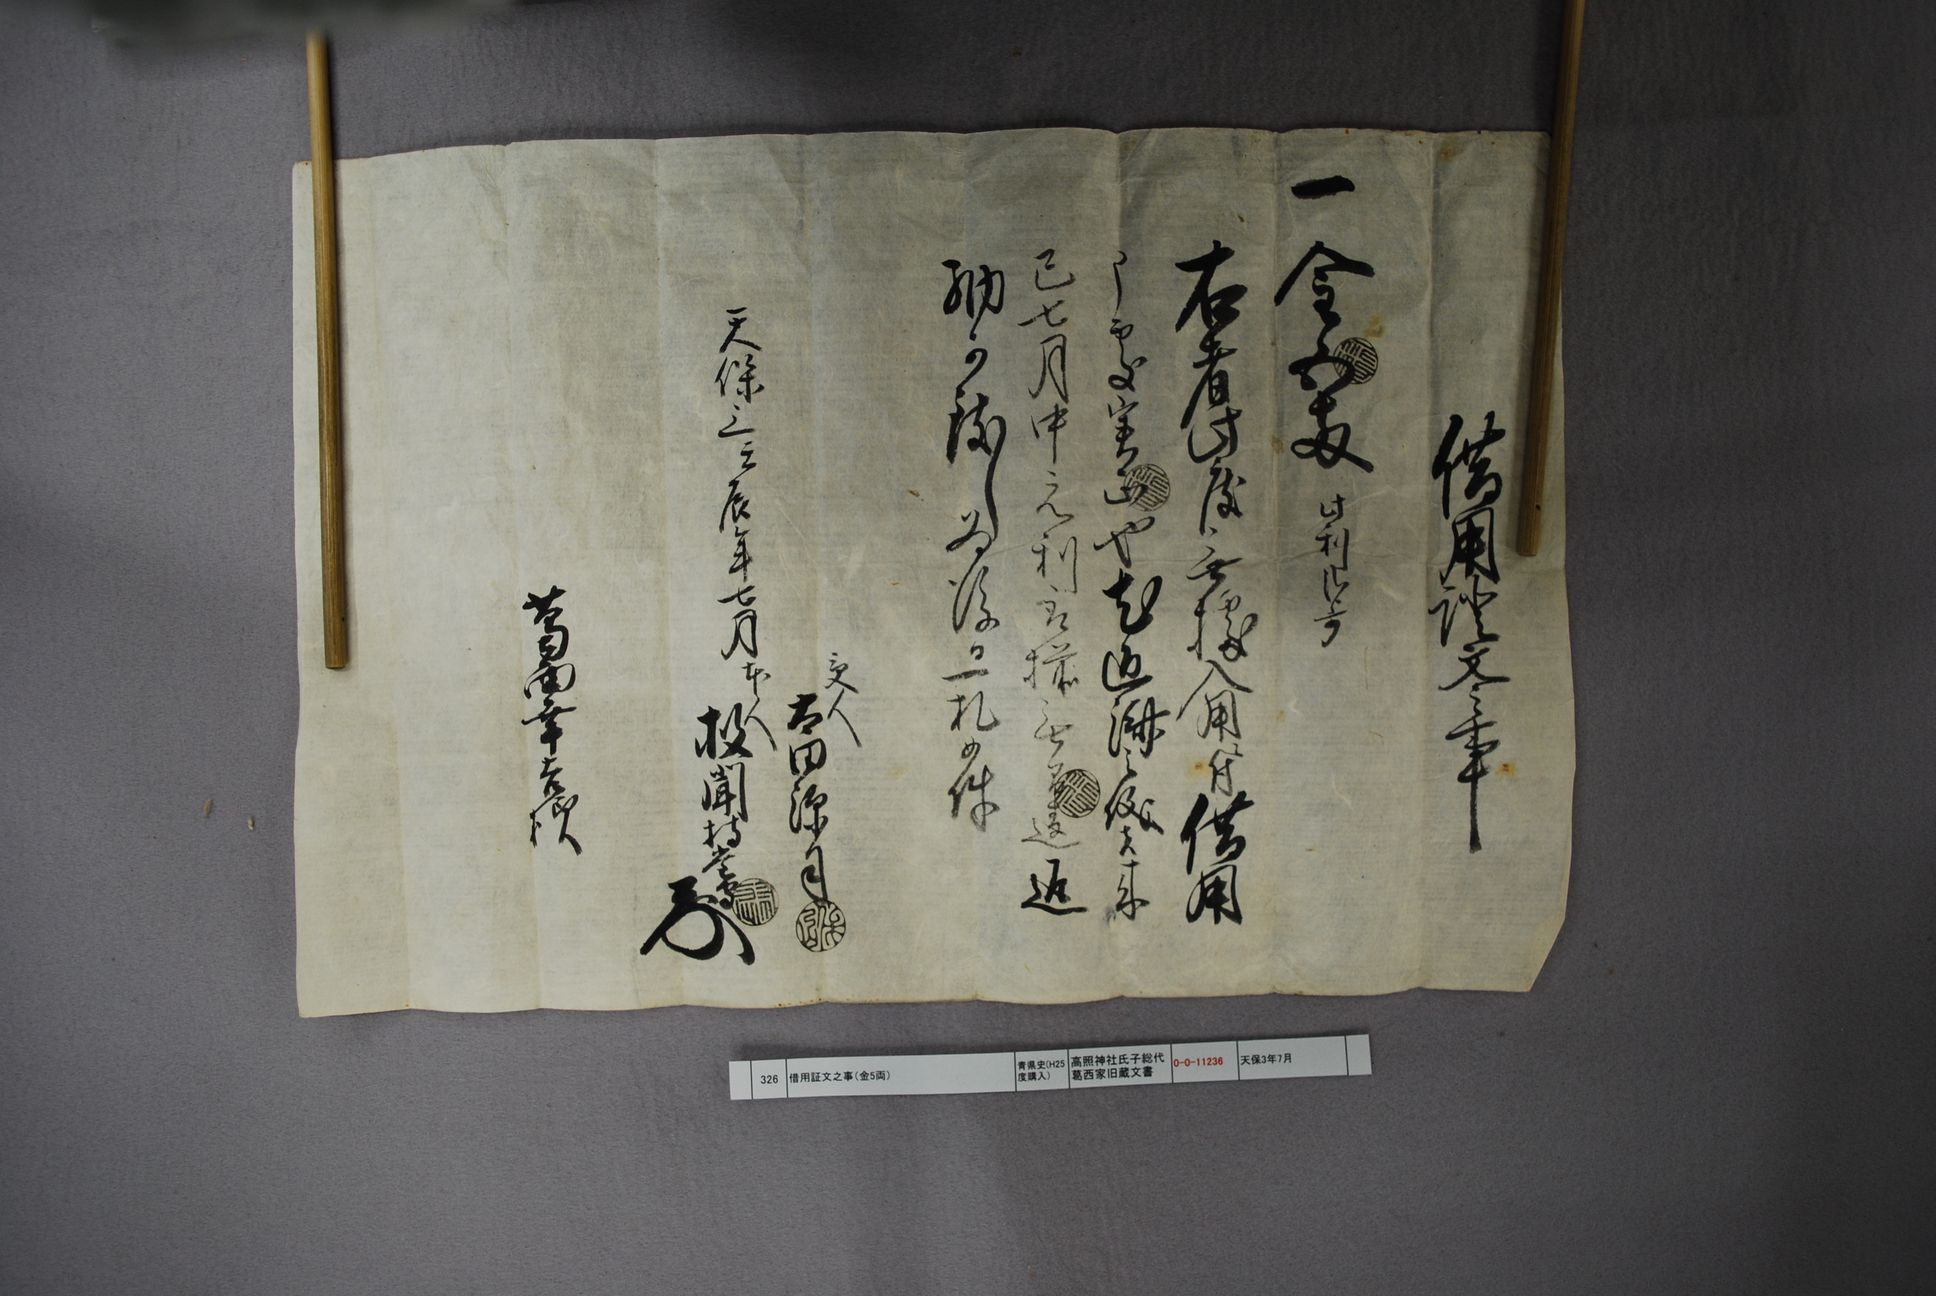 借用證文之事
一金五両 此利
右者此度無據入用付借用
処実正也尤返済之儀者来
巳七月中元利取揃無間違返
納可致候為後日一札如件
天保三壬辰年七月
受人
太田源
本人
葛西幸吉様
326 借用証文之事(金5両) 青県史(H25度購入) 高照神社氏子総代葛西家旧蔵文書 0-0-11236 天保3年7月